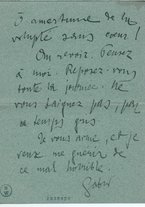 amertume de la
volupté sans cœur !
Au revoir. Pensez
à moi. Reposez-vous
toute la journée. Ne
vous baignez pas, par
ce temps gris
Je vous aime, et je
veux me guérir de
ce mal horrible.
Gabri